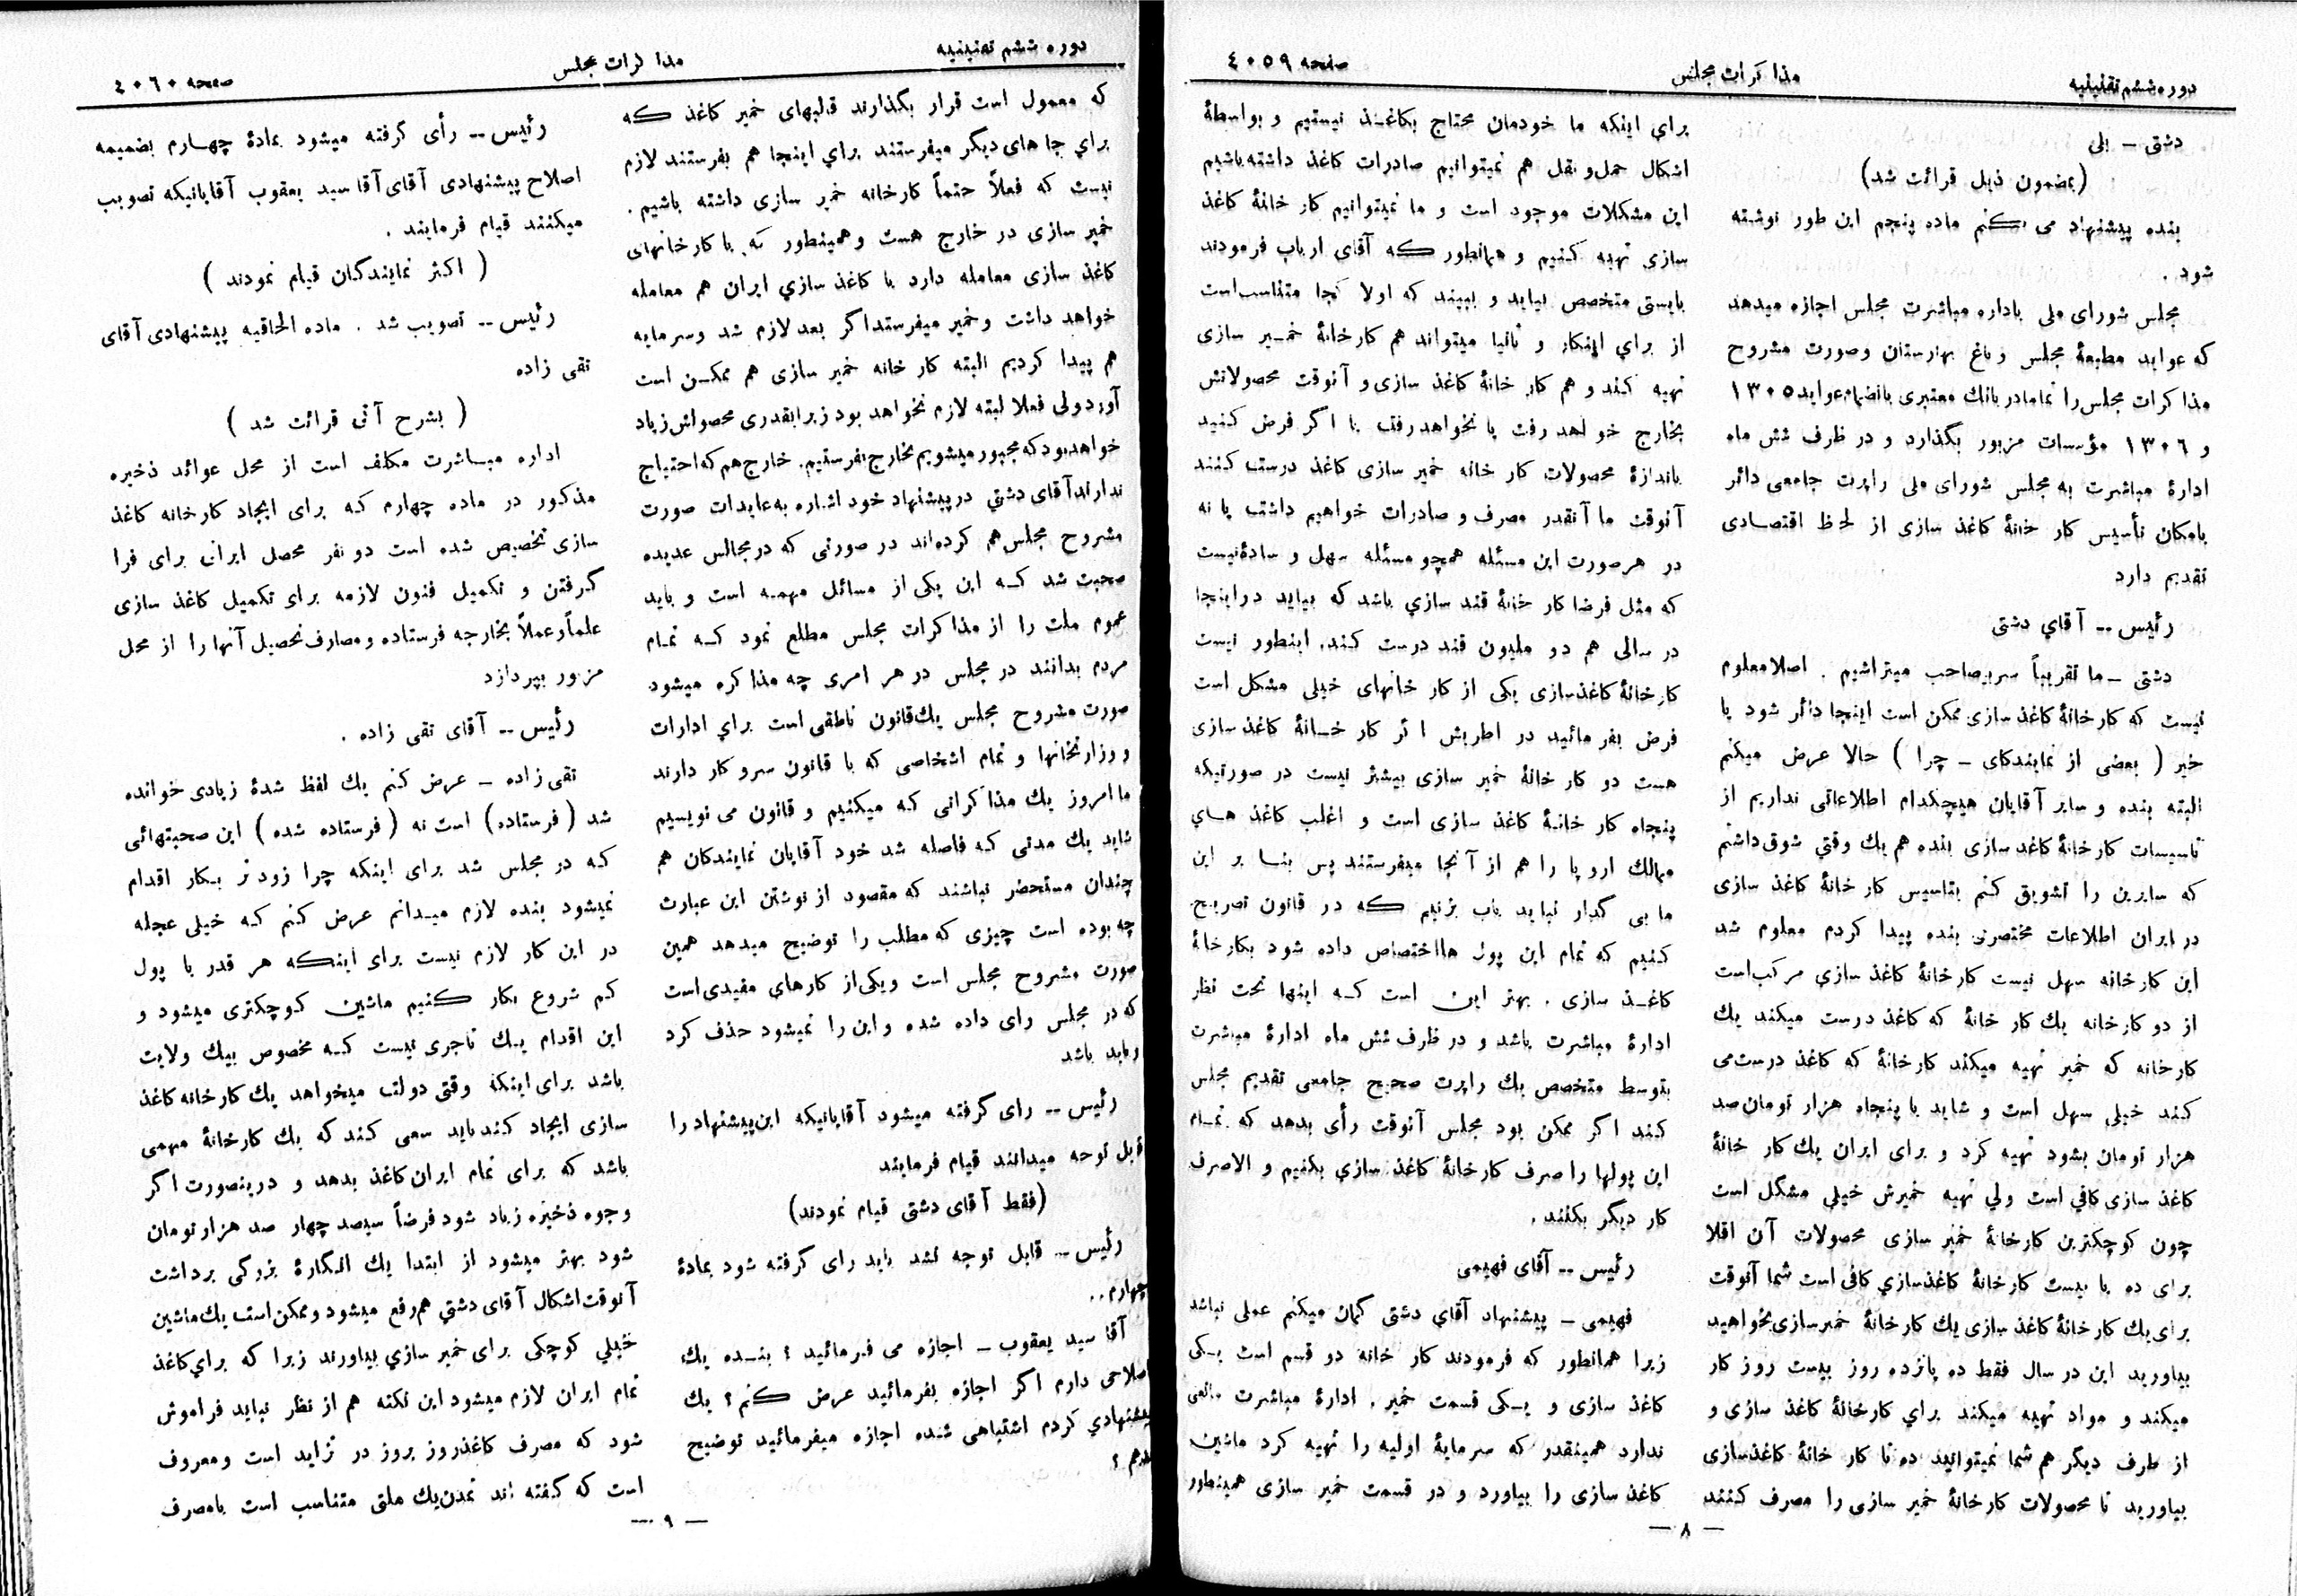 دوره ششم تقنینیه
مذا کرات مجلس
صفحه ۴۰۵۹
دشتی – بلی
(بمضمون ذیل قرائت شد)
بنده پیشنهاد می کنم ماده پنجم این طور نوشته
شود .
مجلس شورای ملی باداره مباشرت مجلس اجازه میدهد
که عواید مطبعهٔ مجلس و باغ بهارستان وصورت مشروح
مذا کرات مجلس را تمامادر بانك معتبری بانضمام عواید ۱۳۰۵
و ۱۳۰۶ مؤسسات مزبور بگذارد و در ظرف شش ماه
ادارهٔ مباشرت به مجلس شورای ملی راپرت جامعی دائر
بامکان تأسیس کار خانهٔ کاغذ سازی از لحاظ اقتصادی
تقدیم دارد
رئیس -- آقاي دشتی
دشتی – ما تقریباً سربیصاحب میتراشیم . اصلا معلوم
نیست که کارخانهٔ کاغذ سازی ممکن است اینجا دائر شود یا
خیر ( بعضی از نمایندکای – چرا ) حالا عرض میکنم
البته بنده و سایر آقایان هیچکدام اطلاعاتی نداریم از
تاسیسات کارخانهٔ کاغذ سازی بنده هم یك وقتي شوق داشتم
که سایرین را تشویق کنم بتاسیس کار خانهٔ کاغذ سازی
در ایران اطلاعات مختصری بنده پیدا کردم معلوم شد
این کارخانه سهل نیست کارخانهٔ کاغذ سازي مرکب است
از دو کارخانه یك کار خانهٔ که کاغذ درست میکند یك
کارخانه که خمیر تهیه میکند کارخانهٔ که کاغذ درست می
کند خیلی سهل است و شاید با پنجاه هزار تومان صد
هزار تومان بشود تهیه کرد و برای ایران یك کار خانهٔ
کاغذ سازی کافي است ولي تهیه خمیرش خیلي مشگل است
چون کوچکترین کارخانهٔ خمیر سازی محصولات آن اقلا
برای ده یا بیست کارخانهٔ کاغذسازي کافی است شما آنوقت
برای یك کارخانهٔ کاغذ سازی یك کارخانهٔ خمیرسازی بخواهید
بیاورید این در سال فقط ده پانزده روز بیست روز کار
میکند و مواد تهیه میکند براي کارخانهٔ کاغذ سازی و
از طرف دیگر هم شما نمیتوانید ده تا کار خانهٔ کاغذسازی
بیاورید تا محصولات کارخانهٔ خمیر سازی را مصرف کنند
براي اینکه ما خودمان محتاج بکاغذ نیستیم و بواسطهٔ
اشکال حمل و نقل هم نمیتوانیم صادرات کاغذ داشته باشیم
این مشکلات موجود است و ما نمیتوانیم کار خانهٔ کاغذ
سازی تهیه کنیم و همانطور که آقای ارباب فرمودند
بایستی متخصص بیاید و ببیند که اولا کجا متناسب است
از براي اینکار و ثانیا میتواند هم کارخانهٔ خمیر سازی
تهیه کند و هم کار خانهٔ کاغذ سازی و آنوقت محصولاتش
بخارج خواهد رفت یا نخواهد رفت یا اگر فرض کنید
باندازهٔ محصولات کار خانه خمیر سازی کاغذ درست کنند
آنوقت ما آنقدر مصرف و صادرات خواهیم داشت یا نه
در هرصورت این مسئله همچو مسئله سهل و سادهٔ نیست
که مثل فرضا کار خانهٔ قند سازي باشد که بیاید در اینجا
در سالی هم دو ملیون قند درست کند. اینطور نیست
کارخانهٔ کاغذسازی یکی از کار خانهای خیلی مشکل است
فرض بفرمائید در اطریش اگر کار خانهٔ کاغذ سازی
هست دو کار خانهٔ خمیر سازی بیشتر نیست در صورتیکه
پنجاه کار خانهٔ کاغذ سازی است و اغلب کاغذ هاي
ممالك اروپا را هم از آنجا میفرستند پس بنا بر این
ما بی گدار نباید بآب بزنیم که در قانون تصریح
کنیم که تمام این پول هااختصاص داده شود بکارخانهٔ
کاغذ سازی . بهتر این است که اینها تحت نظر
ادارهٔ مباشرت باشد و در ظرف شش ماه ادارهٔ مباشرت
بتوسط متخصص یك راپرت صحیح جامعی تقدیم مجلس
کند اگر ممکن بود مجلس آنوقت رأی بدهد که تمام
این پولها را صرف کارخانهٔ کاغذ سازي بکنیم و الاصرف
کار دیگر بکنند.
رئیس -- آقای فهیمی
فهیمی – پیشنهاد آقاي دشتی گمان میکنم عملی نباشد
زیرا همانطور که فرمودند کار خانه دو قسم است یکی
کاغذ سازی و یکی قسمت خمیر . ادارهٔ مباشرت مانعی
ندارد همینقدر که سرمایهٔ اولیه را تهیه کرد ماشین
کاغذ سازی را بیاورد و در قسمت خمیر سازی همینطور
– ۸ –
دوره ششم تقنینیه
مذا کرات مجلس
صفحه ۴۰۶۰
که معمول است قرار بگذارند قالبهای خمیر کاغذ که
براي جا های دیگر میفرستند براي اینجا هم بفرستند لازم
نیست که فعلاً حتماً کارخانه خمیر سازی داشته باشیم .
خمیر سازی در خارج هست و همینطور که با کارخانهای
کاغذ سازی معامله دارد با کاغذ سازي ایران هم معامله
خواهد داشت و خمیر میفرستد اگر بعد لازم شد وسرمایه
هم پیدا کردیم البته کار خانه خمیر سازی هم ممکن است
آورد ولی فعلا لبته لازم نخواهد بود زیرا بقدری محصولش زیاد
خواهد بود که مجبور میشویم بخارج بفرستیم. خارج هم که احتیاج
ندارند آقای دشتي در پیشنهاد خود اشاره به عایدات صورت
مشروح مجلس هم کرده‌اند در صورتی که در مجالس عدیده
صحبت شد که این یکی از مسائل مهمه است و باید
عموم ملت را از مذاکرات مجلس مطلع نمود که تمام
مردم بدانند در مجلس در هر امری چه مذا کره میشود
صورت مشروح مجلس یك قانون ناطقی است براي ادارات
و وزارتخانها و تمام اشخاصی که با قانون سروکار دارند
ما امروز یك مذاکراتی که میکنیم و قانون می نویسیم
شاید یك مدتی که فاصله شد خود آقایان نمایندکان هم
چندان مستحضر نباشند که مقصود از نوشتن این عبارت
چه بوده است چیزی که مطلب را توضیح میدهد همین
صورت مشروح مجلس است و یکی از کارهای مفیدی است
که در مجلس رای داده شده و این را نمیشود حذف کرد
و باید باشد
رئیس -- رای گرفته میشود آقایانیکه این پیشنهاد را
قابل توجه میدانند قیام فرمایند
(فقط آقای دشتی قیام نمودند)
رئیس -- قابل توجه نشد باید رای گرفته شود بمادهٔ
چهارم..
آقا سید یعقوب – اجازه می فرمائید ؟ بنده یك
اصلاحی دارم اگر اجازه بفرمائید عرض کنم ؟ یك
پیشنهادي کردم اشتباهی شده اجازه میفرمائید توضیح
بدهم ؟
رئیس -- رأی گرفته میشود بمادهٔ چهارم بضمیمه
اصلاح پیشنهادی آقای آقا سید یعقوب آقایانیکه تصویب
میکنند قیام فرمایند .
( اکثر نمایندگان قیام نمودند )
رئیس -- تصویب شد . ماده الحاقیه پیشنهادی آقای
تقی زاده
( بشرح آتی قرائت شد )
اداره مباشرت مکلف است از محل عوائد ذخیره
مذکور در ماده چهارم که برای ایجاد کارخانه کاغذ
سازی تخصیص شده است دو نفر محصل ایرانی برای فرا
گرفتن و تکمیل فنون لازمه برای تکمیل کاغذ سازی
علماً و عملاً بخارجه فرستاده و مصارف تحصیل آنها را از محل
مزبور بپردازد
رئیس -- آقای تقی زاده .
تقی زاده – عرض کنم یك لفظ شدهٔ زیادی خوانده
شد ( فرستاده ) است نه ( فرستاده شده ) این صحبتهائی
که در مجلس شد برای اینکه چرا زود تر بکار اقدام
نمیشود بنده لازم میدانم عرض کنم که خیلی عجله
در این کار لازم نیست برای اینکه هر قدر با پول
کم شروع بکار کنیم ماشین کوچکتری میشود و
این اقدام یك تاجری نیست که مخصوص بیك ولایت
باشد برای اینکه وقتی دولت میخواهد یك کارخانه کاغذ
سازی ایجاد کند باید سعی کند که یك کارخانهٔ مهمی
باشد که برای تمام ایران کاغذ بدهد و درینصورت اگر
وجوه ذخیره زیاد شود فرضاً سیصد چهار صد هزار تومان
شود بهتر میشود از ابتدا یك النگارهٔ بزرگی برداشت
آنوقت اشکال آقای دشتي هم رفع میشود و ممکن است یك ماشین
خیلي کوچکی برای خمیر سازي بیاورند زیرا که براي کاغذ
تمام ایران لازم میشود این نکته هم از نظر نباید فراموش
شود که مصرف کاغذ روز بروز در تزاید است و معروف
است که گفته اند تمدن یك ملتی متناسب است بامصرف
– ۹ –